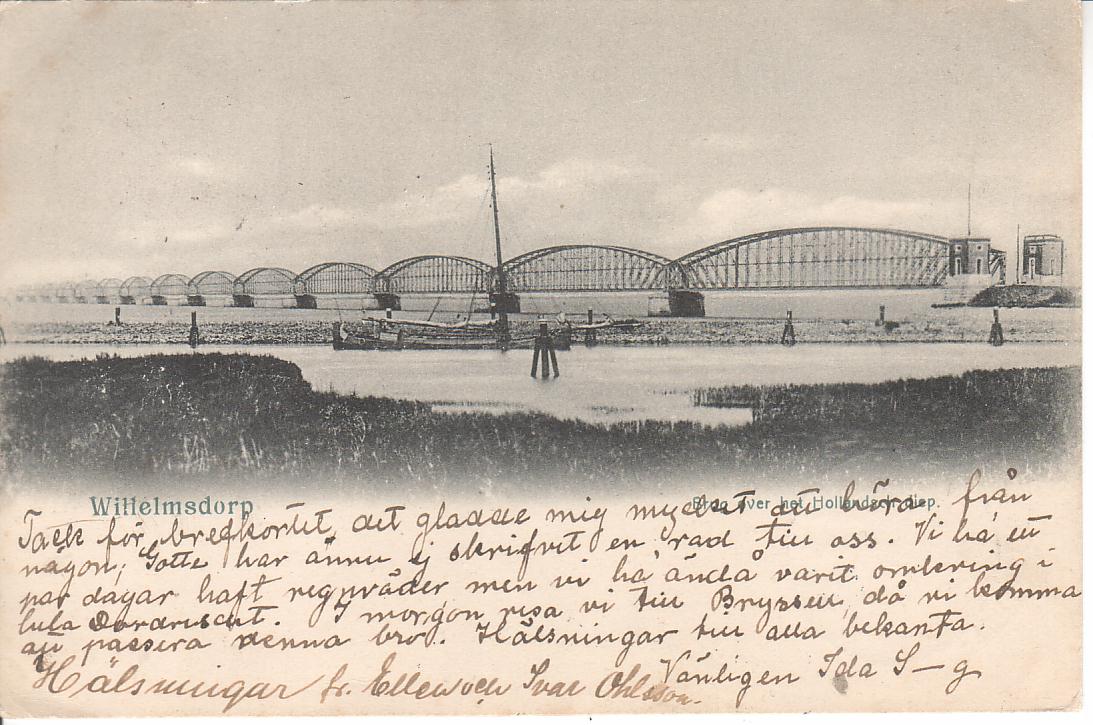 Willelmsdorp
Brug over het Hollandsch diep.
Tack för brefkortet, det gladde mig mycket att höra från
någon; Gotte har ännu ej skrifvit en rad till oss. Vi ha ett
par dagar haft regnväder men vi ha ändå varit omkring i
hela Dordrecht. I morgon resa vi till Bryssel, då vi komma
att passera denna bro. Hälsningar till alla bekanta.
Vänligen Ida S–g
Hälsningar fr. Ellen och Ivar Ohlsson.